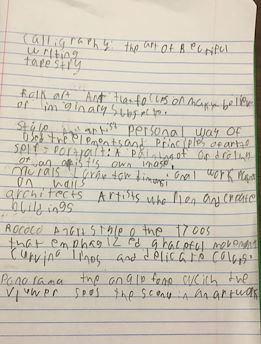 Calligraphy: the art of Beautiful
writing
tapestry
Folk art Art that focuses on make believe
or imaginary subjects.
Style artist personal way of
Using the elements and Principles of art
self-Portrait: A painting or drawing
of an artist's own image.
murals Large two dimensional work
on walls
architects Artists who Plan and create
buildings
Rococo style of the 1700s
that emphasized graceful movement
curving lines and delicate colors.
Panorama the angle from which the
viewer sees the scene in an artwork